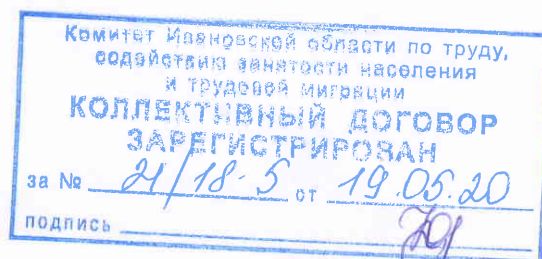 Комитет Ивановской области по труду,
содействию занятости населения
и трудовой миграции
КОЛЛЕКТИВНЫЙ ДОГОВОР
ЗАРЕГИСТРИРОВАН
за № 21/18-5 от 19.05.20
подпись